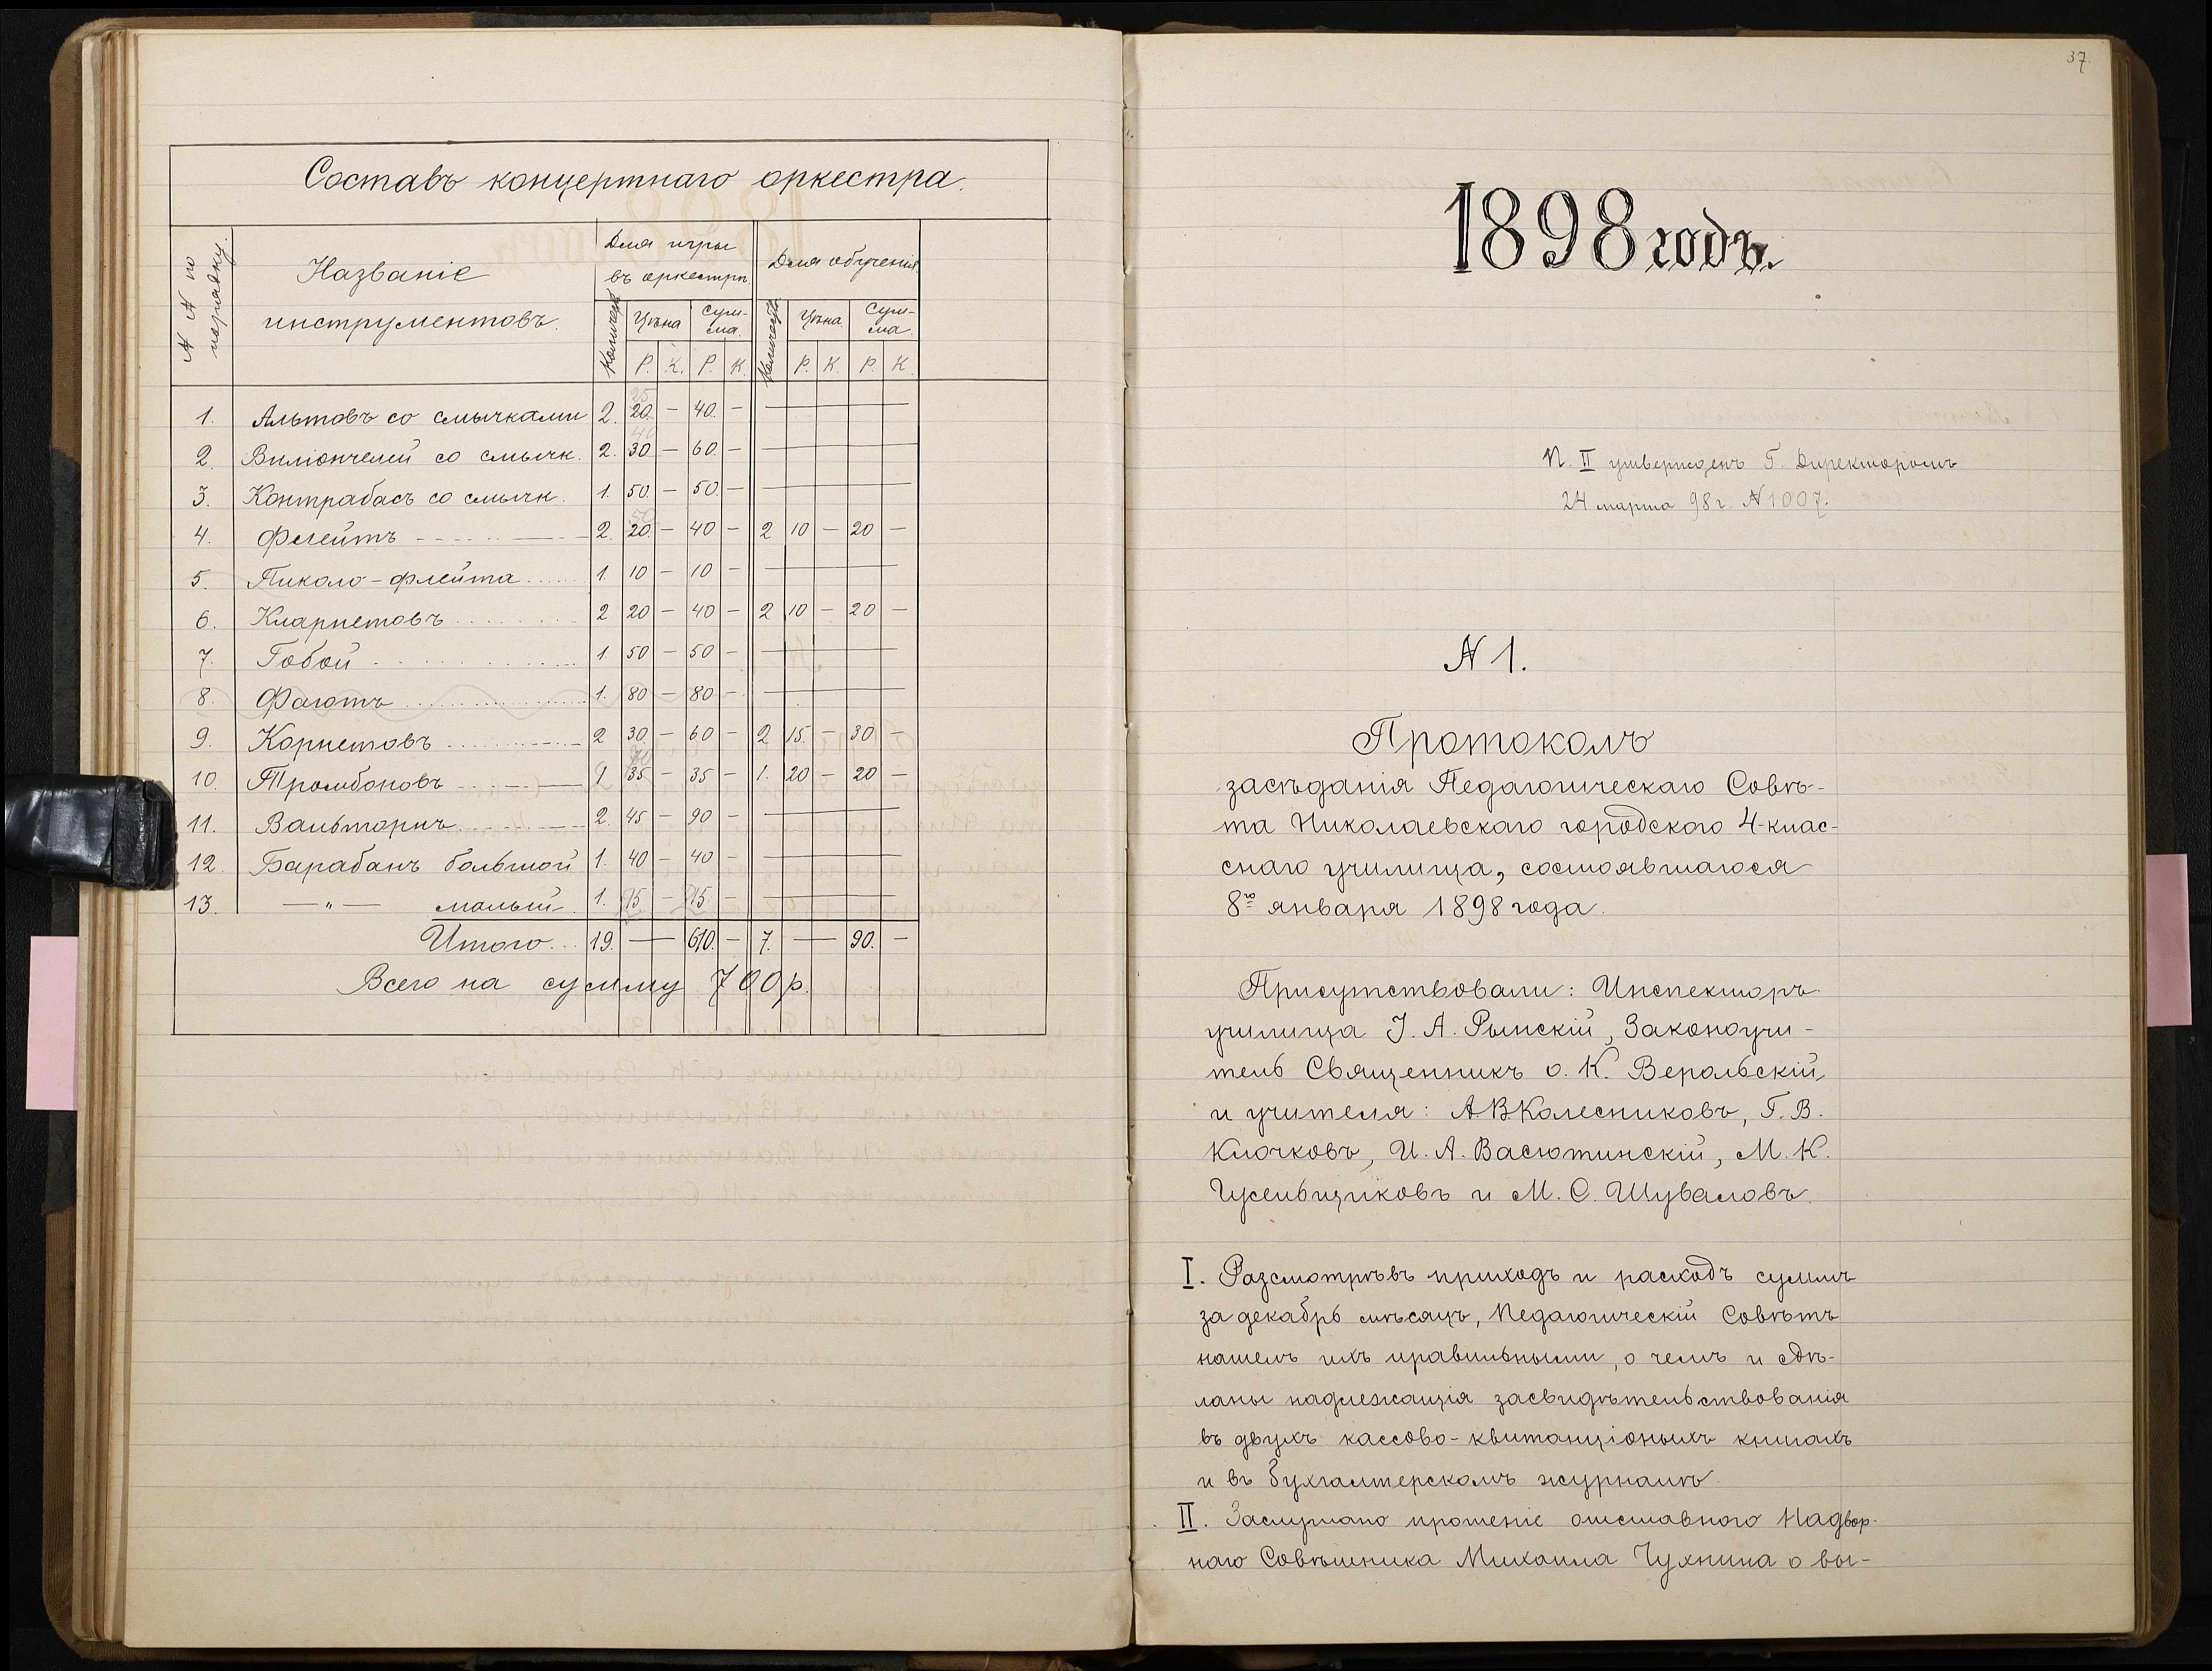 Составъ концертнаго оркестра.
№№ по порядку.
Названіе инструментовъ.
Для игры въ оркестрѣ.
Для обученія
Количест. Цѣна Сумма. Количество. Цѣна Сумма.
Р. К. Р. К. Р. К. Р. К.
1. Альтовъ со смычками 2. 20. — 40. —
2. Виліончелей со смычк. 2. 30 — 60. —
3. Контрабасъ со смычк. 1. 50. — 50. —
4. Флейтъ 2. 20. — 40 — 2 10 — 20 —
5. Пиколо-флейта 1. 10 — 10 —
6. Кларнетовъ 2 20 — 40 — 2 10 — 20 —
7. Гобой 1. 50 — 50 —
8. Фаготъ 1. 80 — 80 —
9. Корнетовъ 2 30 — 60 — 2 15. — 30 —
10. Тромбоновъ 1 35 — 35 — 1. 20 — 20 —
11. Валторнъ 2. 45 — 90 —
12. Барабанъ большой 1. 40 — 40 —
13. —"— малый 1. 15 — 15 —
Итого... 19. — 610. — 7. — 90. —
Всего на сумму 700 р.
37.
1898 годъ.
П. II утвержденъ Г. Директоромъ
24 марта 98 г. №1007.
№ 1.
Протоколъ
засѣданія Педагогическаго Совѣ-
та Николаевскаго городского 4-клас-
снаго училища, состоявшагося
8го января 1898 года.
Присутствовали: Инспекторъ
училища І. А. Рымскій, Законоучи-
тель Священникъ о. К. Верольскій,
и учителя: А.В. Колесниковъ, Г. В.
Клочковъ, И. А. Васютинскій, М. К.
Гусельщиковъ и М. С. Шуваловъ.
I. Разсмотрѣвъ приходъ и расходъ суммъ
за декабрь мѣсяцъ, Педагогическій Совѣтъ
нашелъ ихъ правильными, о чемъ и сдѣ-
ланы надлежащія засвидѣтельствованія
въ двухъ кассово-квитанціоныхъ книгахъ
и въ бухгалтерскомъ журналѣ.
II. Заслушано прошеніе отставного Надвор-
наго Совѣтника Михаила Чухнина о вы-